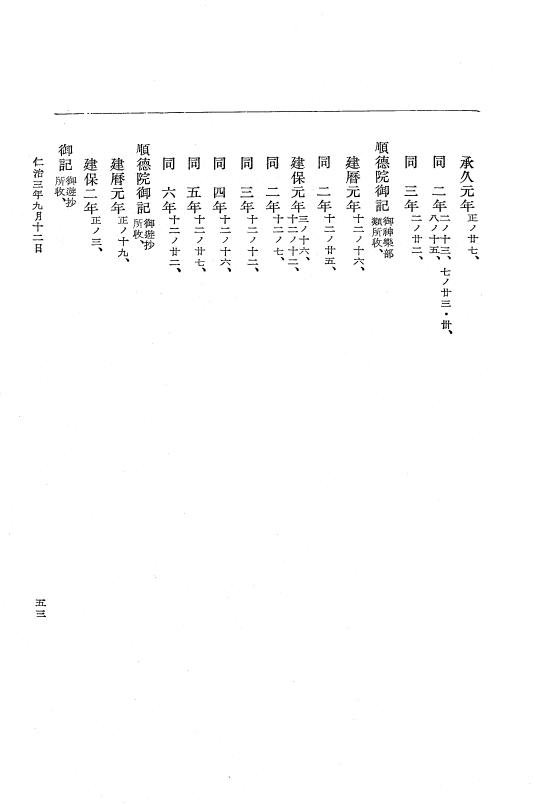 承久元年正ノ廿七、
同　二年二ノ十三、七ノ廿三・卅、八ノ十五、
同　三年二ノ廿二、
順德院御記御神樂部類所收、
建曆元年十二ノ十六、
同　二年十二ノ廿五、
建保元年三ノ十六、十二ノ十二、
同　二年十二ノ七、
同　三年十二ノ十二、
同　四年十二ノ十六、
同　五年十二ノ廿七、
同　六年十二ノ廿二、
順德院御記御遊抄所收、
建曆元年正ノ十九、
建保二年正ノ三、
御記御遊抄所收、
仁治三年九月十二日
五三